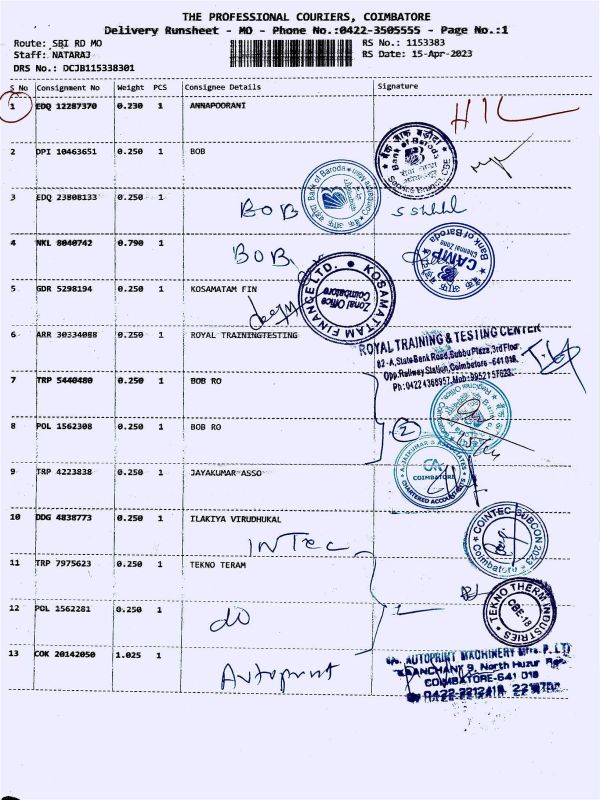 THE PROFESSIONAL COURIERS, COIMBATORE
Delivery Runsheet - MO - Phone No.:0422-3505555 - Page No.:1
Route: SBI RD MO RS No.: 1153383
Staff: NATARAJ RS Date: 15-Apr-2023
DRS No.: DCJB115338301
S No Consignment No Weight PCS Consignee Details Signature
1 EDQ 12287370 0.230 1 ANNAPOORANI
2 DPI 10463651 0.250 1 BOB
बैंक ऑफ़ बड़ौदा Bank of Baroda
3 EDQ 23808133 0.250 1 BOB
Bank of Baroda
4 NKL 8040742 0.790 1 BOB
Bank of Baroda CAMP Chennai Zone
5 GDR 5298194 0.250 1 KOSAMATAM FIN
KOSAMATTAM FINANCE LTD. Zonal Office Coimbatore
6 ARR 30334088 0.250 1 ROYAL TRAININGTESTING
ROYAL TRAINING & TESTING CENTER
82-A, State Bank Road, Subbu Plaza, 3rd Floor,
Opp. Railway Station, Coimbatore - 641 018.
Ph: 0422 4368957, Mob: 9952157623
7 TRP 5440480 0.250 1 BOB RO
8 POL 1562308 0.250 1 BOB RO
2
9 TRP 4223838 0.250 1 JAYAKUMAR ASSO
CA COIMBATORE CHARTERED ACCOUNTANTS
10 DDG 4838773 0.250 1 ILAKIYA VIRUDHUKAL
INTEC
COINTEC SUBCON 2023 Coimbatore
11 TRP 7975623 0.250 1 TEKNO TERAM
TEKNO THERM INDUSTRIES CBE-18
12 POL 1562281 0.250 1
do
13 COK 20142050 1.025 1
Autoprint
AUTOPRINT MACHINERY Mfrs. P. LTD
9, North Huzur Road
COIMBATORE-641 018